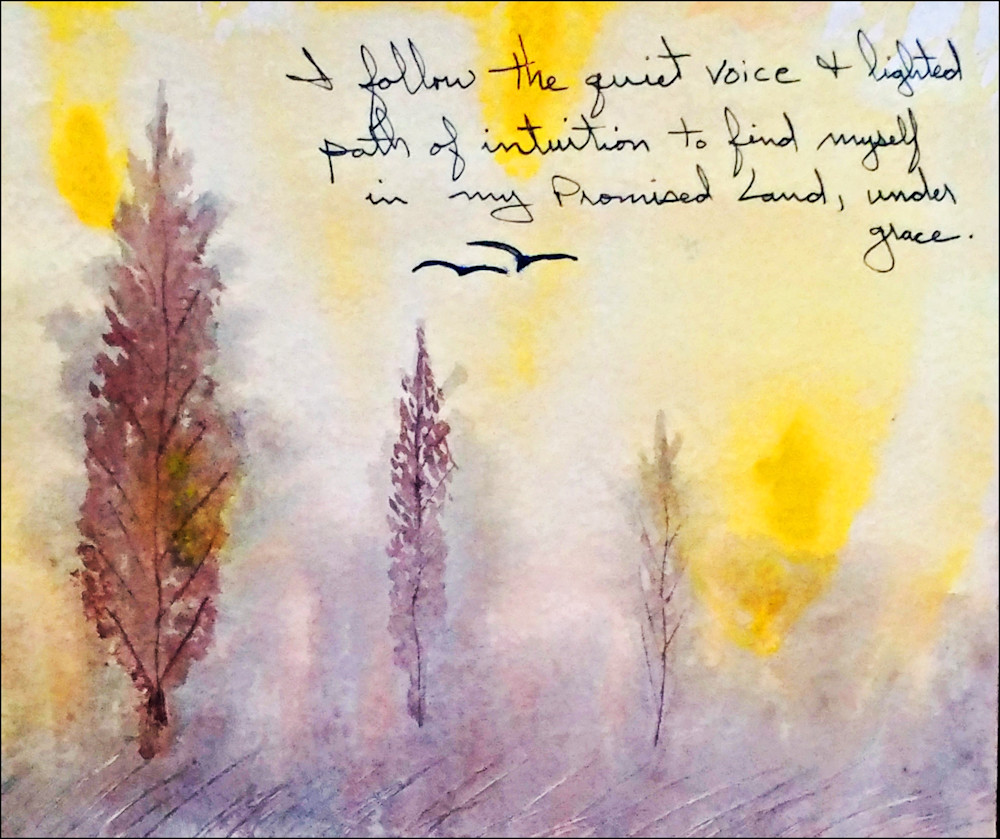 I follow the quiet voice & lighted
path of intuition to find myself
in my Promised Land, under
grace.